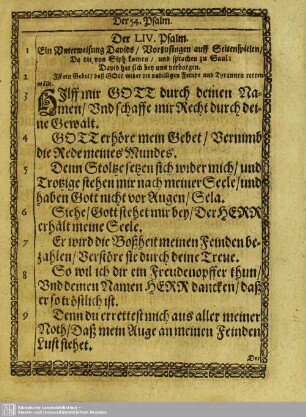 Der 54. Psalm.
Der LIV. Psalm.
1 Ein Unterweisung Davids / Vorzusingen auff Seitenspielen /
2 Da die von Siph kamen / und sprachen zu Saul:
David hat sich bey uns verborgen.
Ist ein Gebet / daß GOtt wider die Feinde und Tyrannen retten
wolle.
3 Hilff mir GOTT durch deinen Na-
men / Und schaffe mir Recht durch dei-
ne Gewalt.
4 GOTT erhöre mein Gebet / Vernimb
die Rede meines Mundes.
5 Denn Stoltze setzen sich wider mich / und
Trotzige stehen mir nach meiner Seele / und
haben Gott nicht vor Augen / Sela.
6 Siehe / Gott stehet mir bey / Der HERR
erhält meine Seele.
7 Er wird die Boßheit meinen Feinden be-
zahlen / Verstöre sie durch deine Treue.
8 So wil ich dir ein Freudenopffer thun /
Und deinen Namen HERR dancken / daß
er so tröstlich ist.
9 Denn du errettest mich aus aller meiner
Noth / Daß mein Auge an meinen Feinden
Lust siehet.
Der